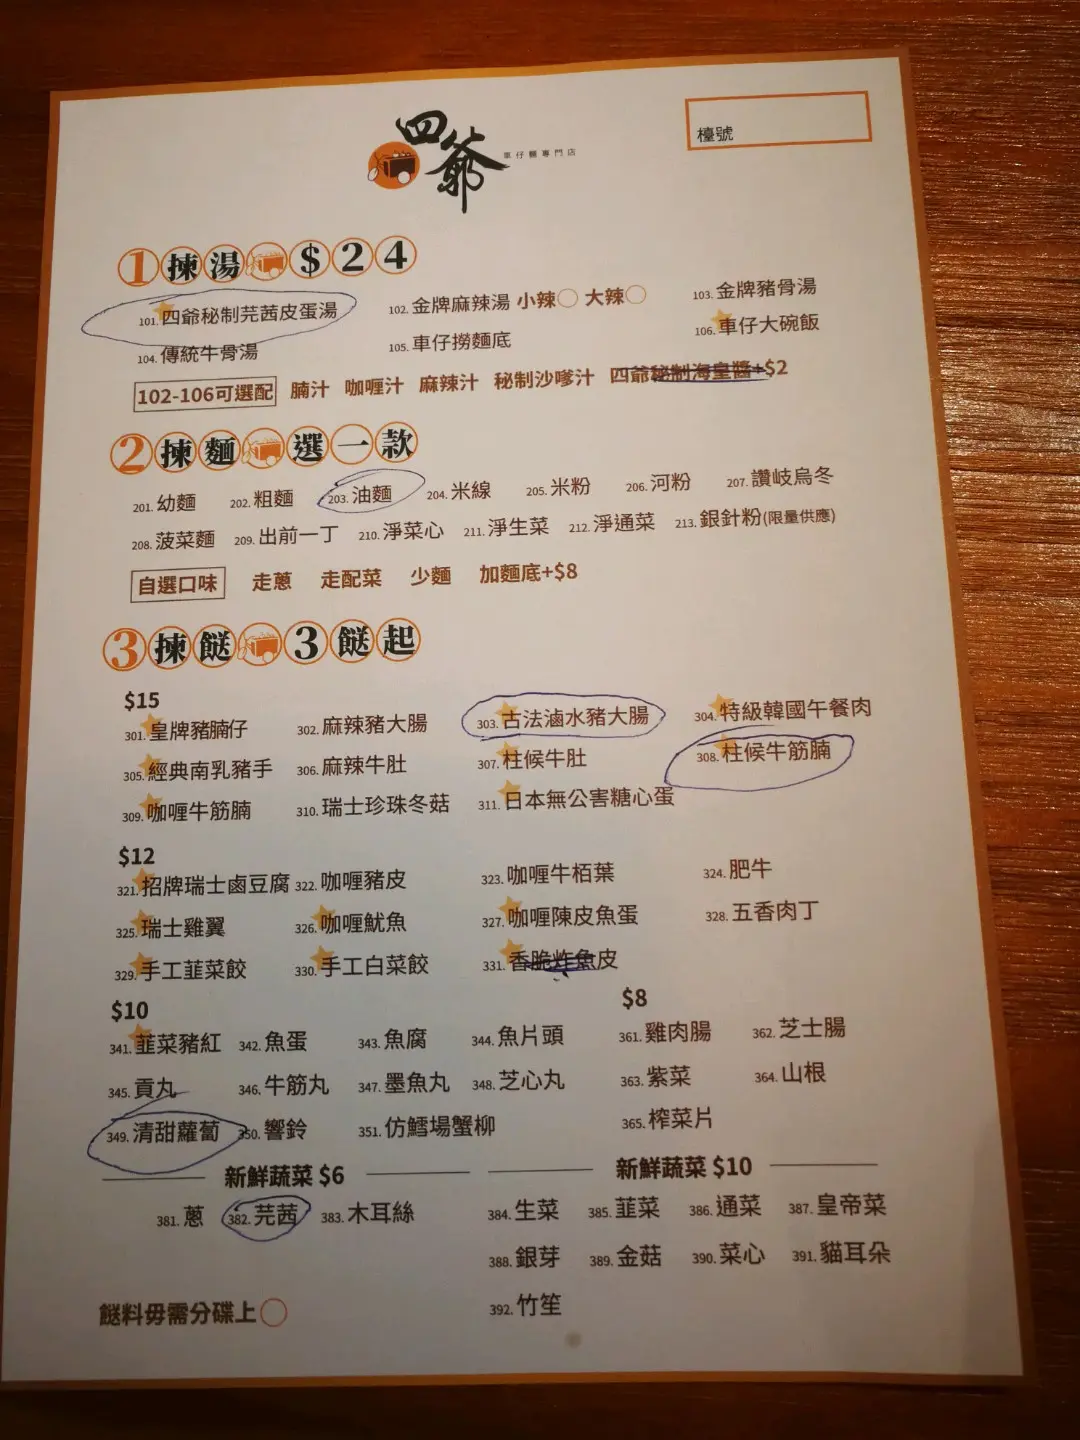 四爺 車仔麵專門店
檯號
1 揀湯 $24
101. 四爺秘制芫茜皮蛋湯 102. 金牌麻辣湯 小辣○ 大辣○ 103. 金牌豬骨湯
104. 傳統牛骨湯 105. 車仔撈麵底 106. 車仔大碗飯
102-106可選配 腩汁 咖喱汁 麻辣汁 秘制沙嗲汁 四爺秘制海皇醬+$2
2 揀麵 選一款
201. 幼麵 202. 粗麵 203. 油麵 204. 米線 205. 米粉 206. 河粉 207. 讚岐烏冬
208. 菠菜麵 209. 出前一丁 210. 淨菜心 211. 淨生菜 212. 淨通菜 213. 銀針粉(限量供應)
自選口味 走蔥 走配菜 少麵 加麵底+$8
3 揀餸 3餸起
$15
301. 皇牌豬腩仔 302. 麻辣豬大腸 303. 古法滷水豬大腸 304. 特級韓國午餐肉
305. 經典南乳豬手 306. 麻辣牛肚 307. 柱候牛肚 308. 柱候牛筋腩
309. 咖喱牛筋腩 310. 瑞士珍珠冬菇 311. 日本無公害糖心蛋
$12
321. 招牌瑞士鹵豆腐 322. 咖喱豬皮 323. 咖喱牛栢葉 324. 肥牛
325. 瑞士雞翼 326. 咖喱魷魚 327. 咖喱陳皮魚蛋 328. 五香肉丁
329. 手工韮菜餃 330. 手工白菜餃 331. 香脆炸魚皮
$10 $8
341. 韮菜豬紅 342. 魚蛋 343. 魚腐 344. 魚片頭 361. 雞肉腸 362. 芝士腸
345. 貢丸 346. 牛筋丸 347. 墨魚丸 348. 芝心丸 363. 紫菜 364. 山根
349. 清甜蘿蔔 350. 響鈴 351. 仿鱈場蟹柳 365. 榨菜片
新鮮蔬菜 $6 新鮮蔬菜 $10
381. 蔥 382. 芫茜 383. 木耳絲 384. 生菜 385. 韮菜 386. 通菜 387. 皇帝菜
388. 銀芽 389. 金菇 390. 菜心 391. 貓耳朵
392. 竹笙
餸料毋需分碟上○